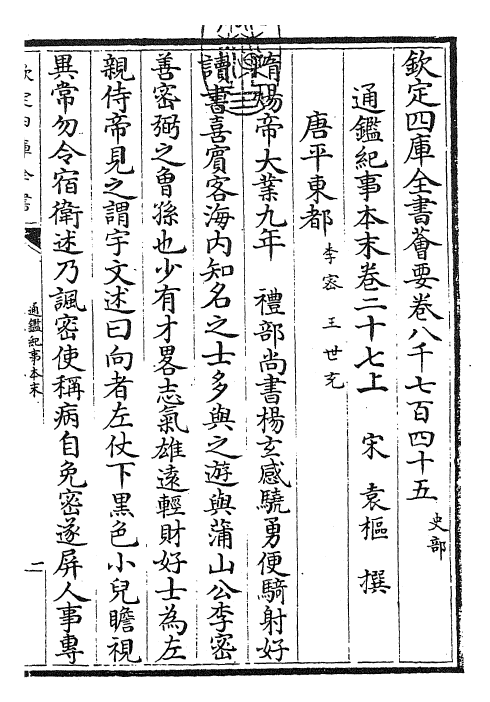 欽定四庫全書薈要卷八千七百四十五 史部
通鑑紀事本末卷二十七上 宋 袁樞 撰
唐平東都 李密 王世充
隋煬帝大業九年 禮部尚書楊玄感驍勇便騎射好
讀書喜賓客海内知名之士多與之遊與蒲山公李密
善密弼之曾孫也少有才畧志氣雄遠輕財好士為左
親侍帝見之謂宇文述曰向者左仗下黑色小兒瞻視
異常勿令宿衛述乃諷密使稱病自免密遂屏人事專
欽定四庫全書
通鑑紀事本末
二